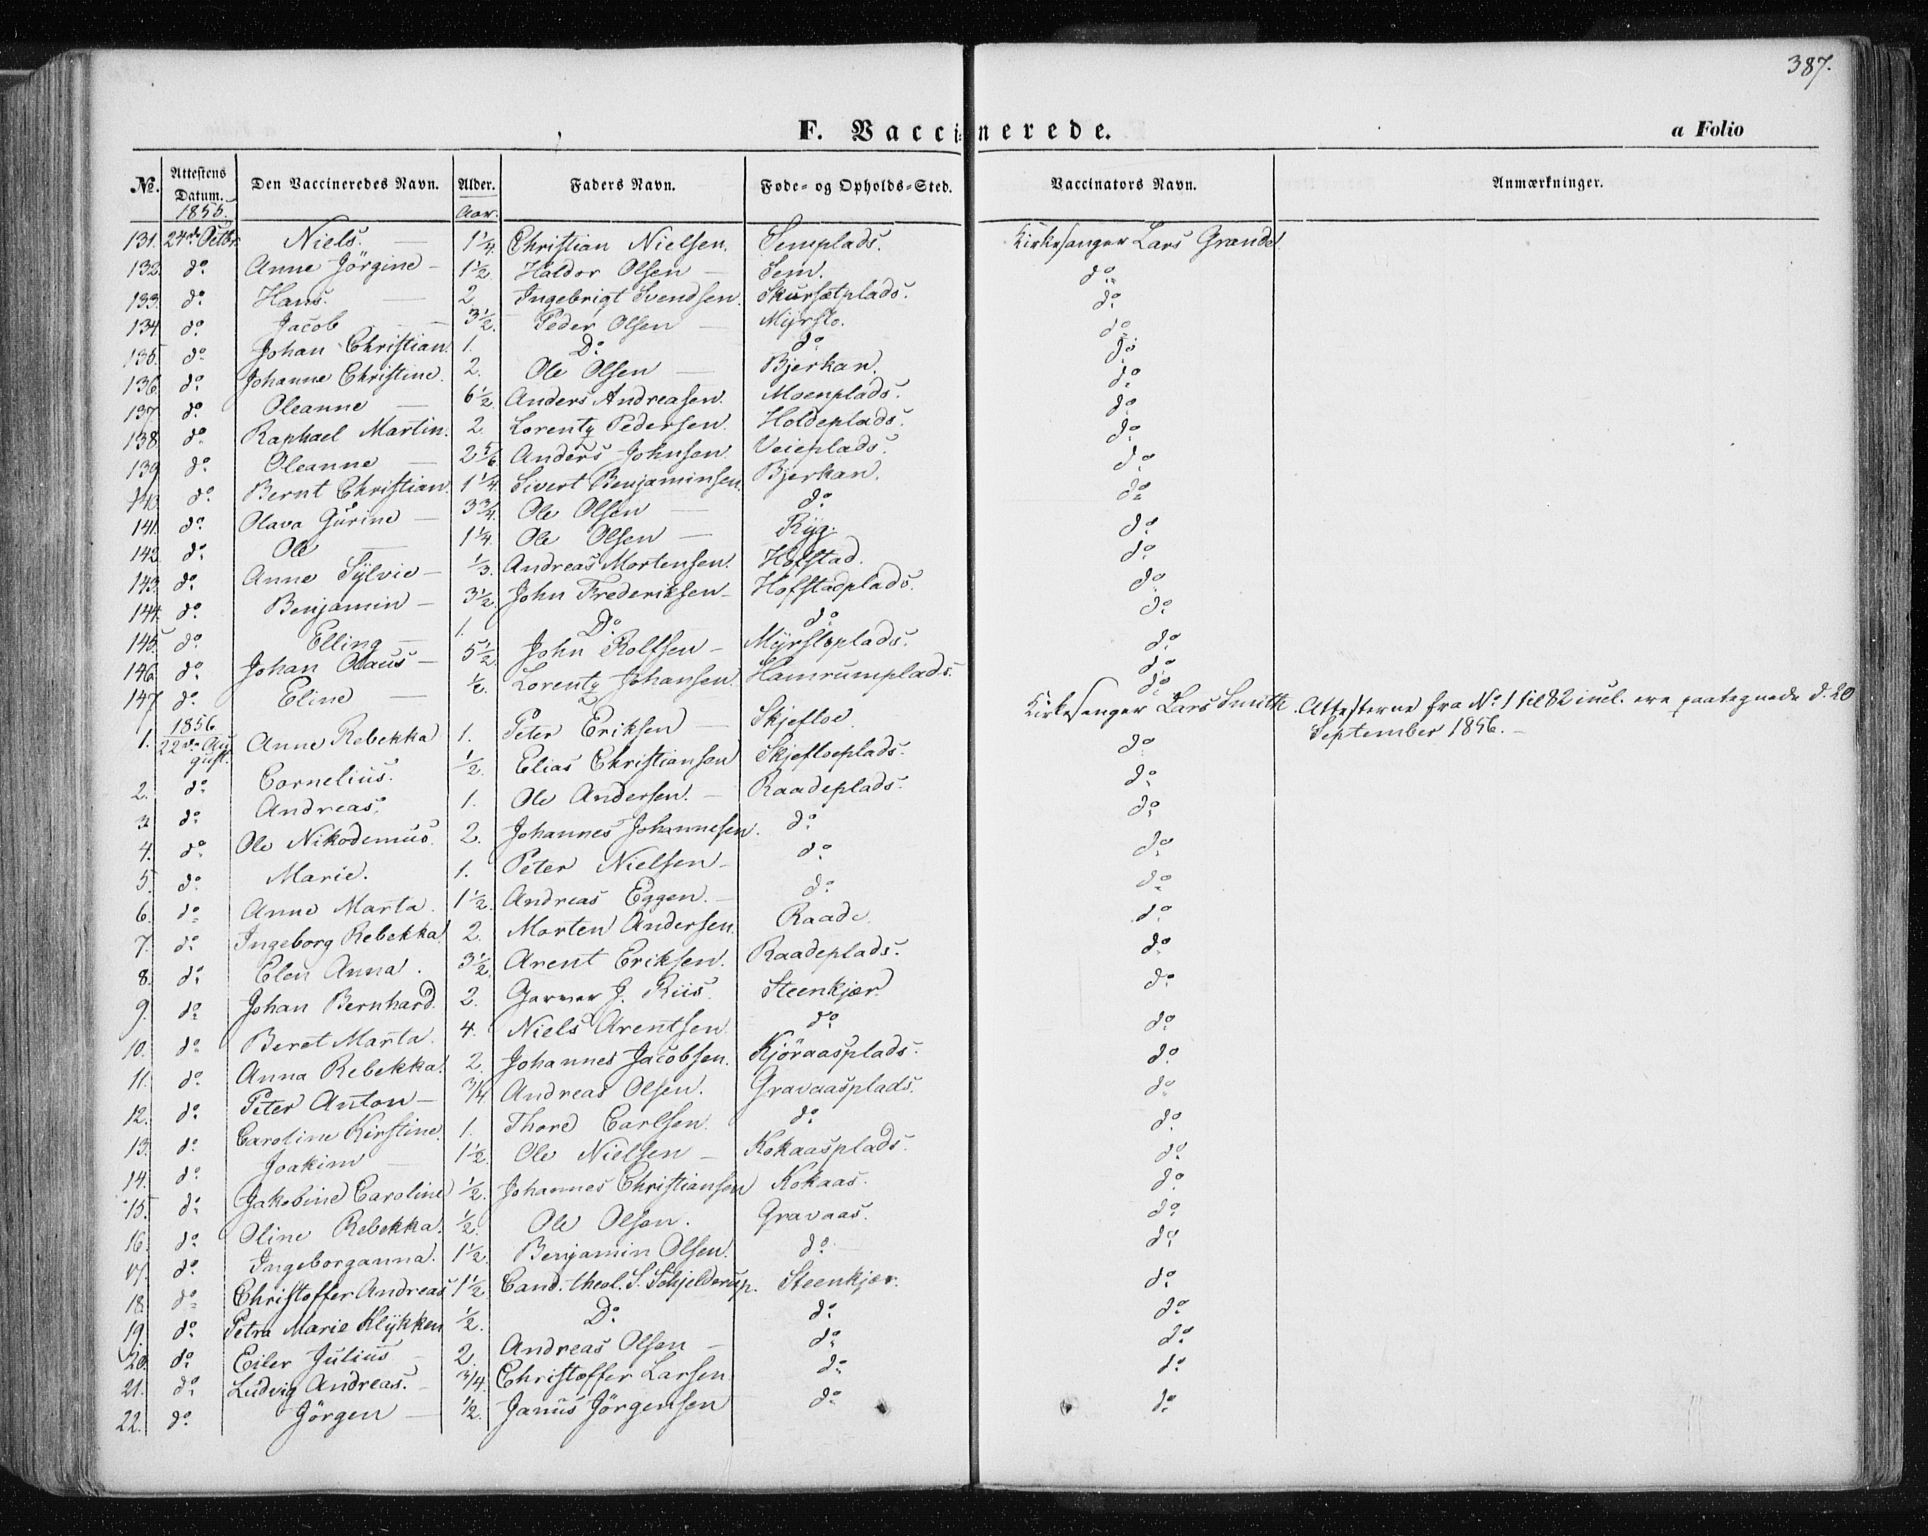 387.
F. Vaccinerede. a Folio
No. Attestens Datum. Den Vaccineredes Navn. Alder. Faders Navn. Føde- og Opholds-Sted. Vaccinators Navn. Anmærkninger.
1855. Aar.
131. 24de Octbr Niels. — 1 1/4. Christian Nielsen. Semplads. Kirkesanger Lars Grande.
132. do. Anne Jörgine — 1 1/2. Haldor Olsen — Sem. do.
133. do. Hans. — 2. Ingebrigt Svendsen. Skursætplads. do.
134. do. Jacob — 3 1/2. Peder Olsen — Myrslo. do.
135. do. Johan Christian. 1. Do. do. do.
136. do. Johanne Christine. 2. Ole Olsen — Bjerkan. do.
137. do. Oleanne — 6 1/2. Anders Andreasen. Moenplads. do.
138. do. Raphael Martin. 2. Lorentz Pedersen. Holdeplads. do.
139. do. Oleanne — 2 5/6. Anders Johnsen. Veieplads. do.
140. do. Bernt Christian. 1 1/4. Sivert Benjaminsen. Bjerkan. do.
141. do. Olava Gurine — 3 3/4. Ole Olsen — do. do.
142. do. Ole — 1 1/4. Ole Olsen — Ryg. do.
143. do. Anne Sylvie — 1/3. Andreas Mortensen. Hofstad. do.
144. do. Benjamin — 3 1/2. John Frederiksen — Hofstadplads. do.
145. do. Elling — 1. Do. do. do.
146. do. Johan Olaus — 5 1/2. John Rolfsen — Myrsloplads. do.
147. do. Eline — 1/2. Lorentz Johansen. Hamrumplads. do.
1856
1. 22de August. Anne Rebekka 1. Peter Eriksen — Skjefloe. Kirkesanger Lars Smith. Attesterne fra No 1 til 82 incl. ere paategnede d. 20
September 1856. —
2. do. Cornelius. 1/2. Elias Christiansen Skjefloeplads. do.
3. do. Andreas. 1. Ole Andersen. — Raadeplads. do.
4. do. Ole Nikodemus. 2. Johannes Johannesen. do. do.
5. do. Marie. 1. Peter Nielsen — do. do.
6. do. Anne Marta. 1 1/2. Andreas Eggen. — do. do.
7. do. Ingeborg Rebekka. 2. Morten Andersen. Raade. do.
8. do. Elen Anna. 3 1/2. Arent Eriksen. Raadeplads. do.
9. do. Johan Bernhard. 2. Garver J. Riis. Steenkjær. do.
10. do. Beret Marta. 4. Niels Arentsen. do. do.
11. do. Anna Rebekka. 2. Johannes Jacobsen. Kjöraasplads. do.
12. do. Peter Anton — 3/4 Andreas Olsen. Gravaasplads. do.
13. do. Caroline Kirstine. 1. Thore Carlsen. do. do.
14. do. Joakim — 1 1/2. Ole Nielsen — Kokaasplads. do.
15. do. Jakobine Caroline 1/2. Johannes Christiansen Kokaas. do.
16. do. Oline Rebekka. 1/2. Ole Olsen. Gravaas. do.
17. do. Ingeborganna. 1 1/2. Benjamin Olsen. do. do.
18. do. Christoffer Andreas 1 1/2 Cand. theol. S. Schjelderup. Steenkjær. do.
19. do. Petra Marie Klykken 1/2. Do. do. do.
20. do. Eiler Julius — 2. Andreas Olsen — do. do.
21. do. Ludvig Andreas. — 3/4. Christoffer Larsen. do. do.
22. do. Jörgen — 1/2. Janus Jörgensen do. do.